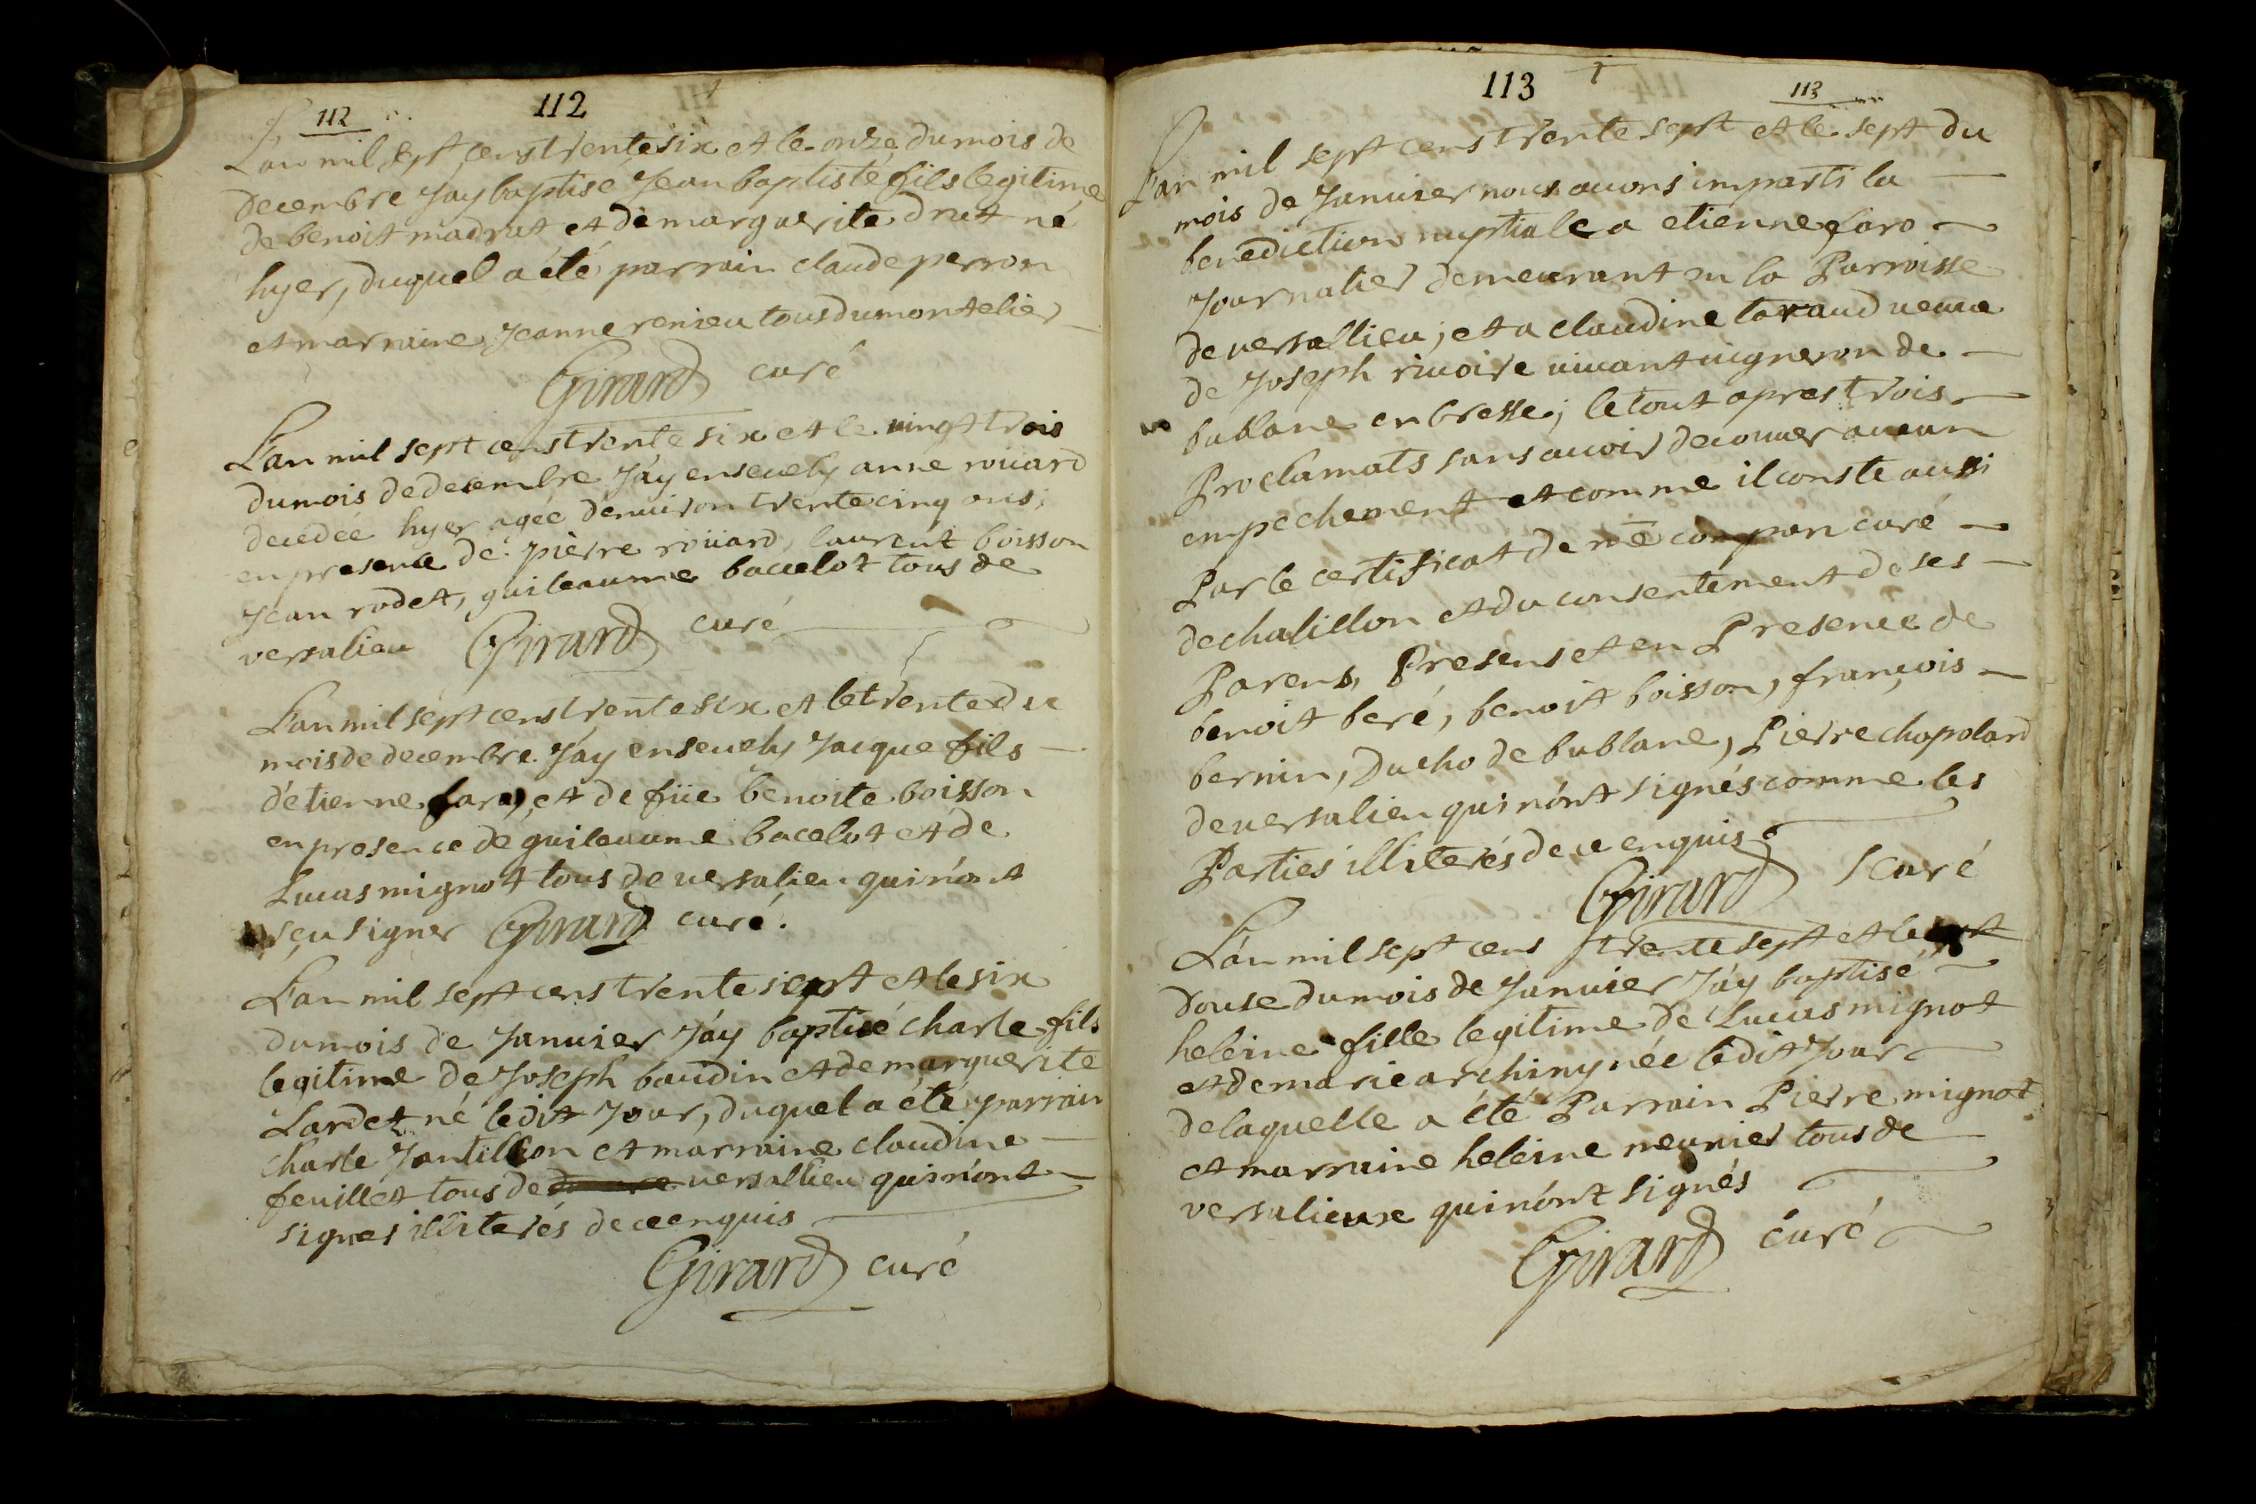 112
112
L'an mil sept cens trente six et le onze du mois de
decembre J'ay baptisé Jean baptiste fils legitime
de benoit madrut et de marguerite drut né
hyer, duquel a été parrain claude perron
et marraine Jeanne renieu tous du montelier
Girard curé
L'an mil sept cens trente six et le vingt trois
du mois de decembre J'ay ensevely anne roüard
decedée hyer agée denviron trente cinq ans,
en presence de pierre roüard, laurent boisson
Jean rodet, guileaume bacelot tous de
versalieu Girard curé
L'an mil sept cens trente six et le trente du
mois de decembre J'ay ensevely Jacque fils
d'etienne faro, et de füe benoite boisson
en presence de guileaume bacelot et de
Lucas mignot tous de versalieu qui n'ont
sçu signer Girard curé.
L'an mil sept cens trente sept et le six
du mois de Janvier J'ay baptisé charle fils
legitime de Joseph baudin et de marguerite
Lardet né ledit Jour, duquel a été parrain
charle Jantillion et marraine claudine
feuillet tous de versallieu qui n'ont
signes illiterés de ce enquis
Girard curé
113
113
L'an mil sept cens trente sept et le sept du
mois de Janvier nous avons imparti la
benediction nuptiale a etienne faro
Journalier demeurant en la Parroisse
de versallieu; et a claudine lavaud veuve
de Joseph rivoire vivant vigneron de
bublane en bresse; le tout apres trois
Proclamats sans avoir decouver aucun
empechement et comme il conste aussi
Par le certificat de mē compan curé
de chatillon et du consentement de ses
Parens, Presens et en Presence de
benoit beré, benoit boisson, françois
bernin, Ducho de bublane, Pierre chapolard
de versalieu qui n'ont signés comme les
Parties illiterés de ce enquis
Girard curé
L'an mil sept cens trente sept et le
douse du mois de Janvier J'ay baptisé
heleine fille legitime de Lucas mignot
et de marie archiny née ledit Jour
de laquelle a été Parrain Pierre mignot
et marraine heleine meunier tous de
versalieux qui n'ont signés
Girard curé